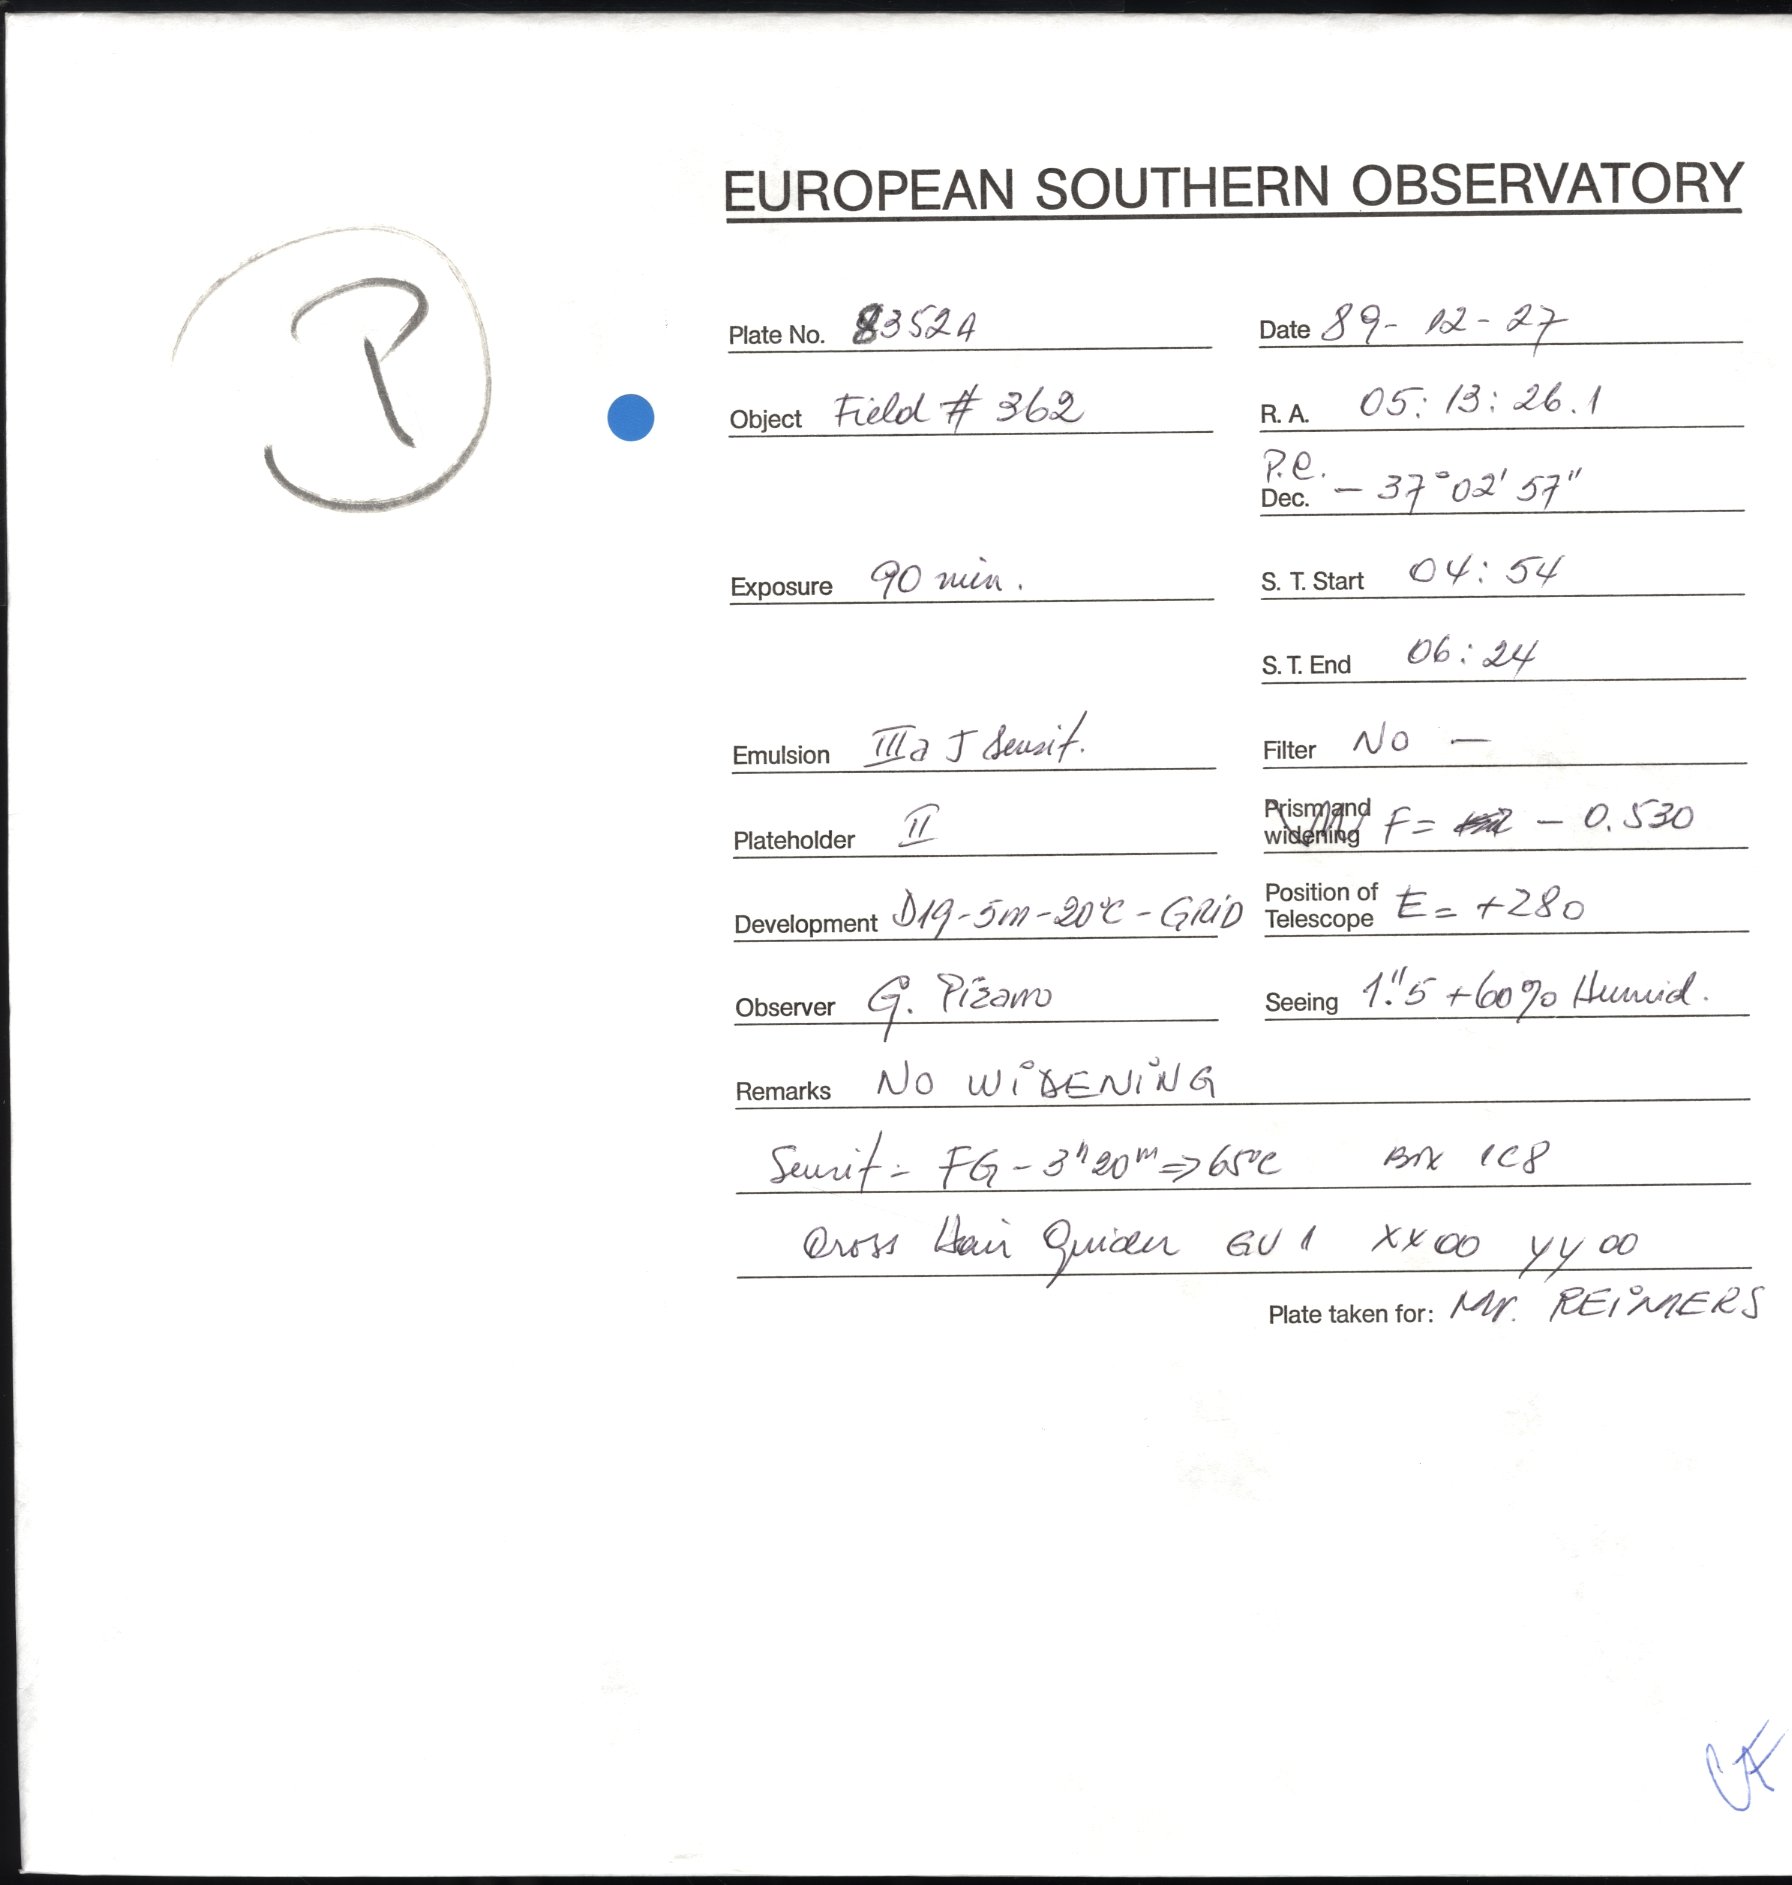 EUROPEAN SOUTHERN OBSERVATORY
P
Plate No. 8352A Date 89-12-27
Object Field # 362 R. A. 05:13:26.1
P.e.
Dec. - 37°02'57"
Exposure 90 min. S. T. Start 04:54
S. T. End 06:24
Emulsion IIIa J Sensit. Filter No —
Plateholder II Prism and widening F= - 0.530
Development D19-5m-20°C-GRiD Position of Telescope E= +280
Observer G. Pizarro Seeing 1."5 +60% Humid.
Remarks No WiDENiNG
Sensit= FG-3h20m=>65°C Box 1C8
Cross Hair Guider GU 1 XX00 YY00
Plate taken for: Mr. REiMERS